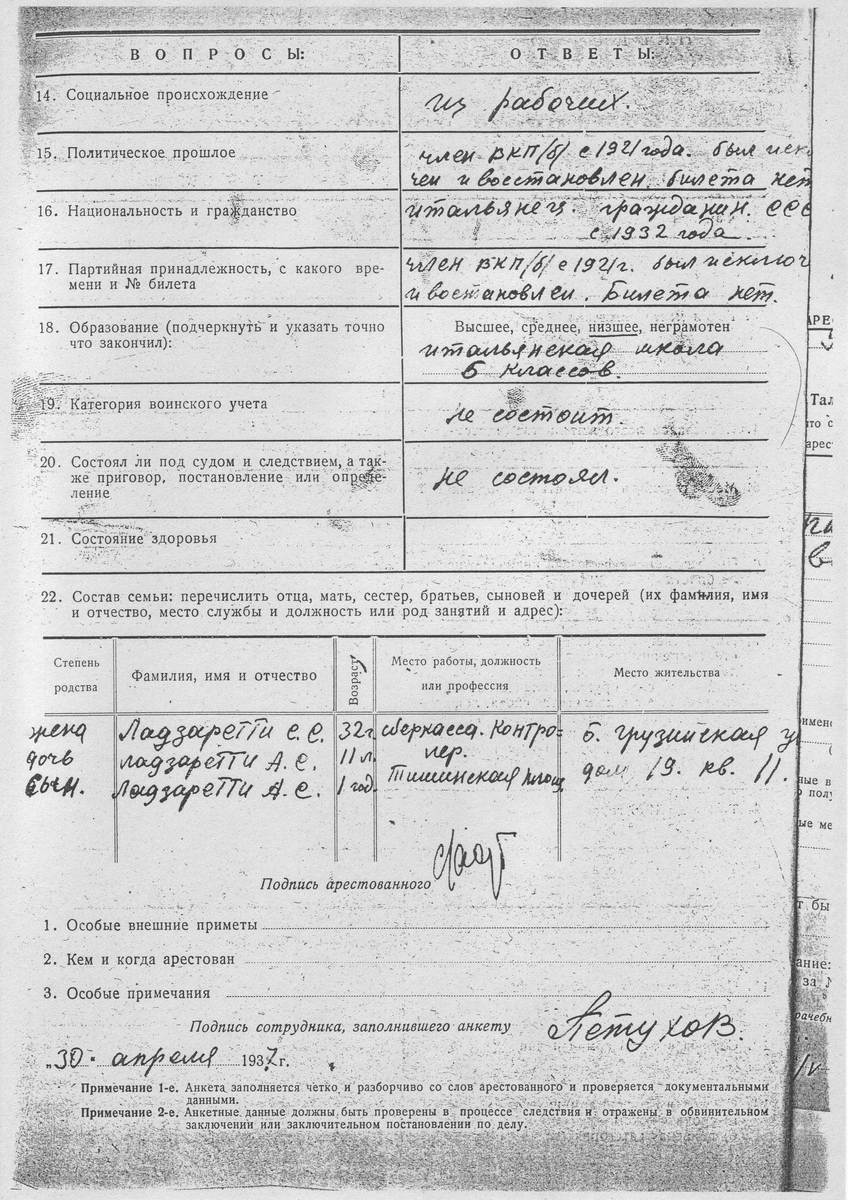 ВОПРОСЫ: ОТВЕТЫ:
14. Социальное происхождение из рабочих.
15. Политическое прошлое член ВКП/б/ с 1921 года. был искл
чен и восстановлен. билета нет
16. Национальность и гражданство итальянец. гражданин. ССС
с 1932 года.
17. Партийная принадлежность, с какого вре- член ВКП/б/ с 1921 г. был исключ
мени и № билета и востановлен. Билета нет.
18. Образование (подчеркнуть и указать точно Высшее, среднее, низшее, неграмотен
что закончил): итальянская школа
5 классов.
19. Категория воинского учета не состоит.
20. Состоял ли под судом и следствием, а так-
же приговор, постановление или опреде- не состоял.
ление
21. Состояние здоровья
22. Состав семьи: перечислить отца, мать, сестер, братьев, сыновей и дочерей (их фамилия, имя
и отчество, место службы и должность или род занятий и адрес):
Степень родства Фамилия, имя и отчество Возраст Место работы, должность или профессия Место жительства
жена Ладзаретти С. С. 32 г. сберкасса. Контро- Б. Грузинская у
дочь Ладзаретти А. С. 11 л. лер. дом 19. кв. 11.
Сын. Ладзаретти А. С. 1 год. Тишинская площ.
Подпись арестованного
1. Особые внешние приметы
2. Кем и когда арестован
3. Особые примечания
Подпись сотрудника, заполнившего анкету Петухов.
„30" апреля 1937 г.
Примечание 1-е. Анкета заполняется четко и разборчиво со слов арестованного и проверяется документальными
данными.
Примечание 2-е. Анкетные данные должны быть проверены в процессе следствия и отражены в обвинительном
заключении или заключительном постановлении по делу.